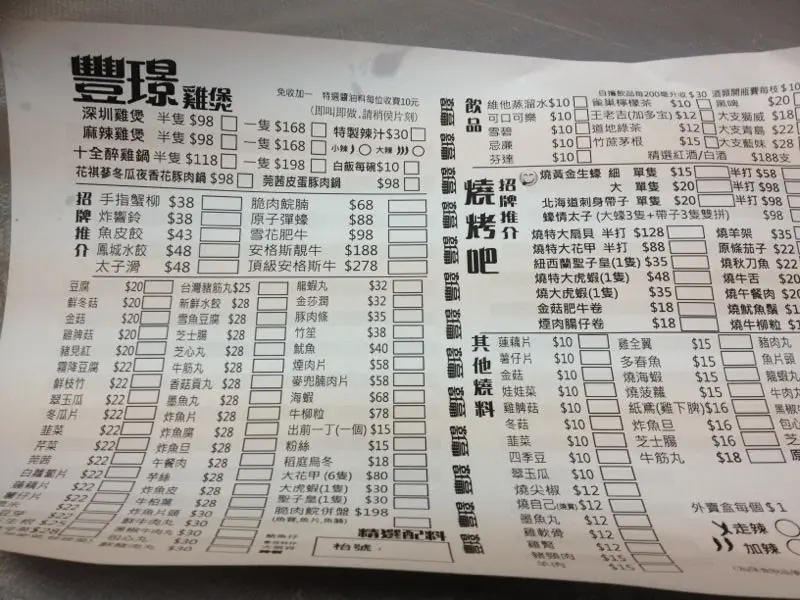 豐璟 雞煲
免收加一 特選醬油料每位收費10元
(即叫即做,請稍侯片刻)
深圳雞煲 半隻 $98 一隻 $168 特製辣汁 $30
麻辣雞煲 半隻 $98 一隻 $168 小辣 大辣
十全醉雞鍋 半隻 $118 一隻 $198 白飯每碗 $10
花祺蔘冬瓜夜香花豚肉鍋 $98 莞茜皮蛋豚肉鍋 $98
招牌推介
手指蟹柳 $38 脆肉鯇腩 $68
炸響鈴 $38 原子彈蠔 $88
魚皮餃 $43 雪花肥牛 $98
鳳城水餃 $48 安格斯靚牛 $188
太子滑 $48 頂級安格斯牛 $278
豆腐 $20 台灣豬筋丸 $25 龍蝦丸 $32
鮮冬菇 $20 新鮮水餃 $28 金莎潤 $32
金菇 $20 雪魚豆腐 $28 豚肉條 $35
雞脾菇 $20 芝士腸 $28 竹笙 $38
豬見紅 $20 芝心丸 $28 魷魚 $40
霜降豆腐 $22 牛筋丸 $28 煙肉片 $58
鮮枝竹 $22 香菇貢丸 $28 麥兜腩肉片 $58
翠玉瓜 $22 墨魚丸 $28 海蝦 $68
冬瓜片 $22 炸魚片 $28 牛柳粒 $78
韭菜 $22 炸魚腐 $28 出前一丁(一個) $15
芹菜 $22 炸魚旦 $28 粉絲 $15
莞茜 $22 午餐肉 $28 稻庭烏冬 $18
白蘿蔔片 $22 芋絲 $28 大花甲 (6隻) $80
蓮藕片 $22 炸魚皮 $28 大虎蝦(1隻) $30
薯仔片 $22 牛柏葉 $28 聖子皇(1隻) $30
炸魚片頭 $30 脆肉鯇併盤 $198
鮮牛肉丸 $30 (魚卜,魚片,魚腩)
$30
包心丸 $30
精選配料
枱號:
飲品
自攜飲品每200毫升收 $30 酒類開瓶費每枝 $10
維他蒸溜水 $10 雀巢檸檬茶 $10 黑啤 $20
可口可樂 $10 王老吉(加多宝) $12 大支獅威 $18
雪碧 $10 道地綠茶 $12 大支青島 $22
忌廉 $10 竹蔗茅根 $15 大支藍妹 $28
芬達 $10 精選紅酒/白酒 $188支
燒烤吧
招牌推介
燒黃金生蠔 細 單隻 $15 半打 $58
大 單隻 $20 半打 $98
北海道刺身帶子 單隻 $20 半打 $98
蠔情太子 (大蠔3隻+帶子3隻雙拼) $98
燒特大扇貝 半打 $128 燒羊架 $35
燒特大花甲 半打 $88 原條茄子 $22
紐西蘭聖子皇(1隻) $35 燒秋刀魚 $22
燒特大虎蝦(1隻) $48 燒牛舌 $20
燒大虎蝦(1隻) $35 燒午餐肉 $20
金菇肥牛卷 $18 燒魷魚鬚 $1
煙肉腸仔卷 $18 燒牛柳粒 $1
其他燒料
蓮藕片 $10 雞全翼 $15 豬肉丸
薯仔片 $10 多春魚 $15 魚片頭
金菇 $10 燒海蝦 $15 龍蝦丸
娃娃菜 $10 燒菠蘿 $15 牛肉丸
雞脾菇 $10 紙鳶(雞下脾) $16 黑椒
冬菇 $10 炸魚旦 $16 包心
韭菜 $10 芝士腸 $16 芝
四季豆 $10 牛筋丸 $18
翠玉瓜 $10
燒尖椒 $12
燒自己(燒賣) $12
墨魚丸 $12
雞軟骨 $12
雞腎 $12
豬頸肉 $15
羊肉 $15
外賣盒每個 $1
走辣
加辣